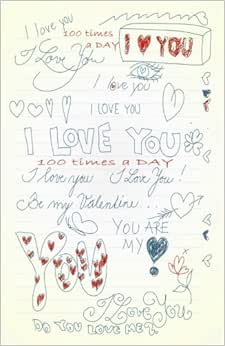 I love you
100 times
a DAY
I ♥ YOU
I Love You
I love you
I LOVE YOU
I LOVE YOU
100 times a DAY
I love you I Love You!
Be my Valentine...
YOU ARE
MY
YOU
I Love You
DO YOU LOVE ME?